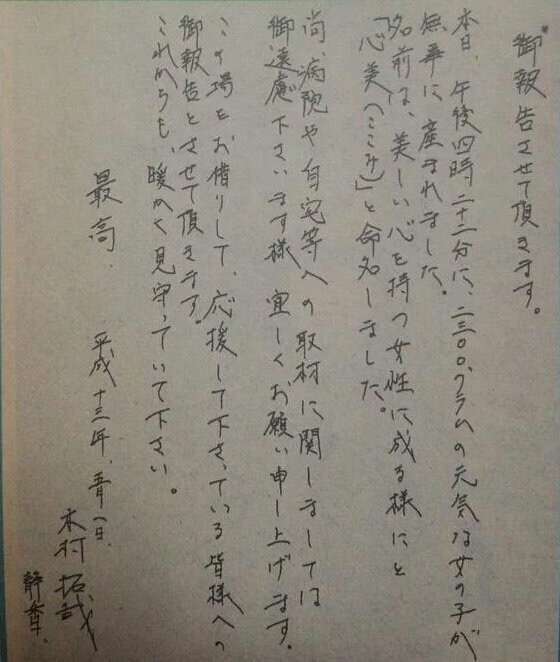 御報告させて頂きます。
本日、午後四時二十二分に、二三〇〇グラムの元気な女の子が
無事に産まれました。
名前は、美しい心を持つ女性に成る様にと
「心美(ここみ)」と命名しました。
尚、病院や自宅等への取材に関しましては
御遠慮下さいます様 宜しくお願い申し上げます。
この場をお借りして、応援して下さっている皆様への
御報告とさせて頂きます。
これからも、暖かく見守っていて下さい。
最高. 平成 十三年、五月一日、
木村拓哉
静香.